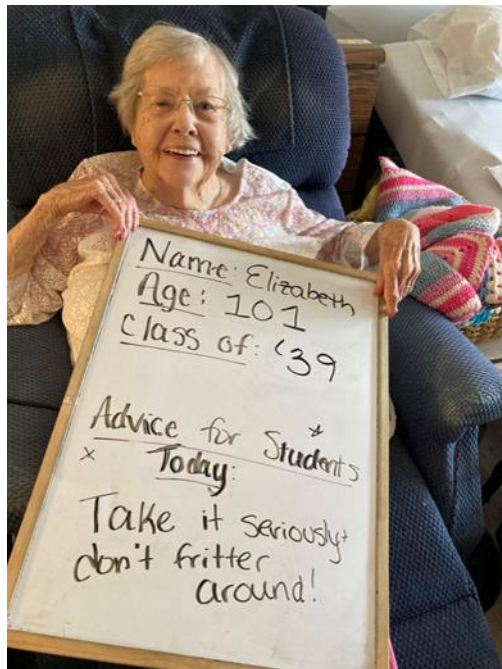 Name: Elizabeth
Age: 101
Class of: '39
Advice for Students
Today:
Take it seriously +
don't fritter
around!